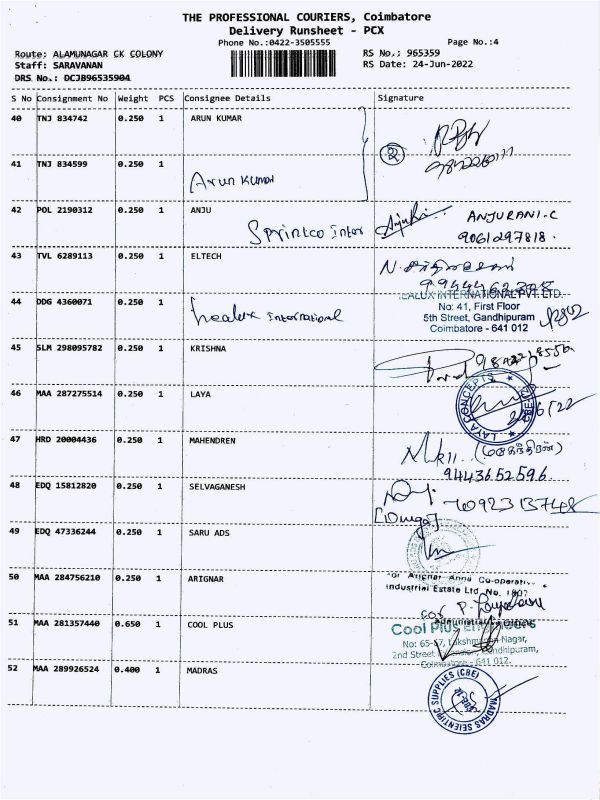 THE PROFESSIONAL COURIERS, Coimbatore
Delivery Runsheet - PCX
Phone No.:0422-3505555 Page No.:4
Route: ALAMUNAGAR CK COLONY RS No.: 965359
Staff: SARAVANAN RS Date: 24-Jun-2022
DRS No.: DCJB96535904
S No Consignment No Weight PCS Consignee Details Signature
40 TNJ 834742 0.250 1 ARUN KUMAR
②
41 TNJ 834599 0.250 1
Arun Kumar
42 POL 2190312 0.250 1 ANJU ANJURANI.C
Sprintco Inter 9061297818.
43 TVL 6289113 0.250 1 ELTECH
44 DDG 4360071 0.250 1 healux International
INTERNATIONAL PVT. LTD.
No: 41, First Floor
5th Street, Gandhipuram
Coimbatore - 641 012
45 SLM 298095782 0.250 1 KRISHNA
46 MAA 287275514 0.250 1 LAYA
LAYA CONCEPTS
47 HRD 20004436 0.250 1 MAHENDREN
9443652596.
48 EDQ 15812820 0.250 1 SELVAGANESH
[Durga]
49 EDQ 47336244 0.250 1 SARU ADS
50 MAA 284756210 0.250 1 ARIGNAR
For Arignar Anna Co-operative
Industrial Estate Ltd. No. 1807
51 MAA 281357440 0.650 1 COOL PLUS
Cool Plus
No: 65-67, Lakshmanan Nagar,
2nd Street Gandhipuram,
Coimbatore - 641 012.
52 MAA 289926524 0.400 1 MADRAS
MADRAS SCIENTIFIC SUPPLIES (CBE)